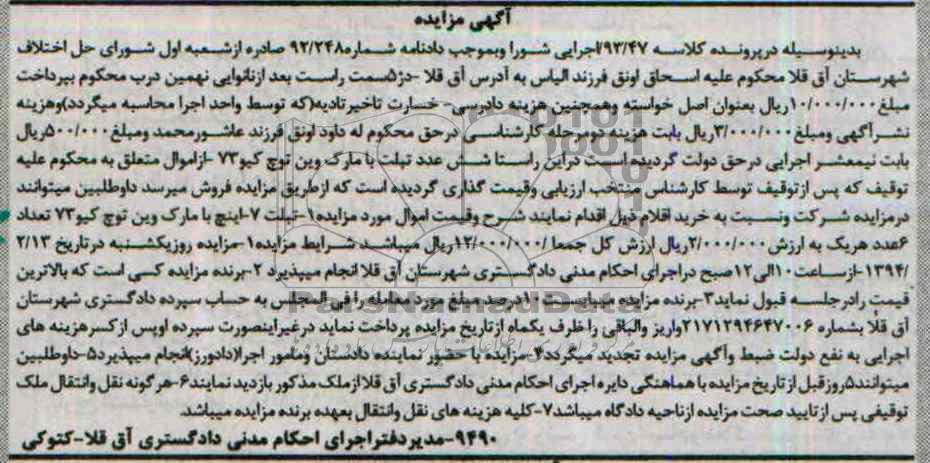 آگهی مزایده
بدینوسیله درپرونده کلاسه ۹۳/۴۷/اجرایی شورا وبموجب دادنامه شماره۹۲/۲۴۸ صادره ازشعبه اول شورای حل اختلاف
شهرستان آق قلا محکوم علیه اسحاق اونق فرزند الیاس به آدرس آق قلا -دژ۵سمت راست بعد ازنانوایی نهمین درب محکوم بپرداخت
مبلغ۱۰/۰۰۰/۰۰۰ریال بعنوان اصل خواسته وهمچنین هزینه دادرسی- خسارت تاخیرتادیه(که توسط واحد اجرا محاسبه میگردد)وهزینه
نشرآگهی ومبلغ۳/۰۰۰/۰۰۰ریال بابت هزینه دومرحله کارشناسی درحق محکوم له داود اونق فرزند عاشورمحمد ومبلغ۵۰۰/۰۰۰ریال
بابت نیمعشر اجرایی درحق دولت گردیده است دراین راستا شش عدد تبلت با مارک وین توچ کیو۷۳ -ازاموال متعلق به محکوم علیه
توقیف که پس ازتوقیف توسط کارشناس منتخب ارزیابی وقیمت گذاری گردیده است که ازطریق مزایده فروش میرسد داوطلبین میتوانند
درمزایده شرکت ونسبت به خرید اقلام ذیل اقدام نمایند شرح وقیمت اموال مورد مزایده۱-تبلت ۷-اینچ با مارک وین توچ کیو۷۳ تعداد
۶عدد هریک به ارزش ۲/۰۰۰/۰۰۰ریال ارزش کل جمعا /۱۲/۰۰۰/۰۰۰ریال میباشد شرایط مزایده۱-مزایده روزیکشنبه درتاریخ ۲/۱۳
/۱۳۹۴-ازساعت۱۰الی۱۲صبح دراجرای احکام مدنی دادگستری شهرستان آق قلاانجام میپذیرد ۲-برنده مزایده کسی است که بالاترین
قیمت رادرجلسه قبول نماید۳-برنده مزایده میبایست ۱۰درصد مبلغ مورد معامله را فی المجلس به حساب سپرده دادگستری شهرستان
آق قلا بشماره ۲۱۷۱۲۹۴۶۴۷۰۰۶واریز والباقی را ظرف یکماه ازتاریخ مزایده پرداخت نماید درغیراینصورت سپرده اوپس ازکسرهزینه های
اجرایی به نفع دولت ضبط وآگهی مزایده تجدید میگردد۴-مزایده با حضور نماینده دادستان ومامور اجرا(دادورز)انجام میپذیرد۵-داوطلبین
میتوانند۵روزقبل ازتاریخ مزایده با هماهنگی دایره اجرای احکام مدنی دادگستری آق قلا ازملک مذکور بازدید نمایند۶-هرگونه نقل وانتقال ملک
توقیفی پس ازتایید صحت مزایده ازناحیه دادگاه میباشد۷-کلیه هزینه های نقل وانتقال بعهده برنده مزایده میباشد.
۹۴۹۰-مدیردفتراجرای احکام مدنی دادگستری آق قلا-کتوکی
ParsNamadData